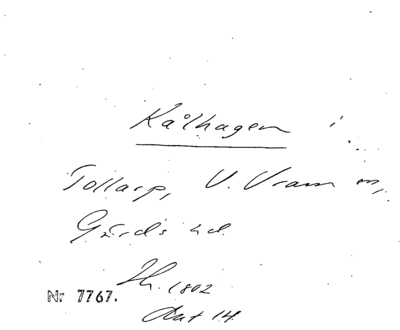 Kålhagen i
Tollarp, V. Vram sn,
Gärds hd.
Th. 1802
Nr 7767.
Akt 14